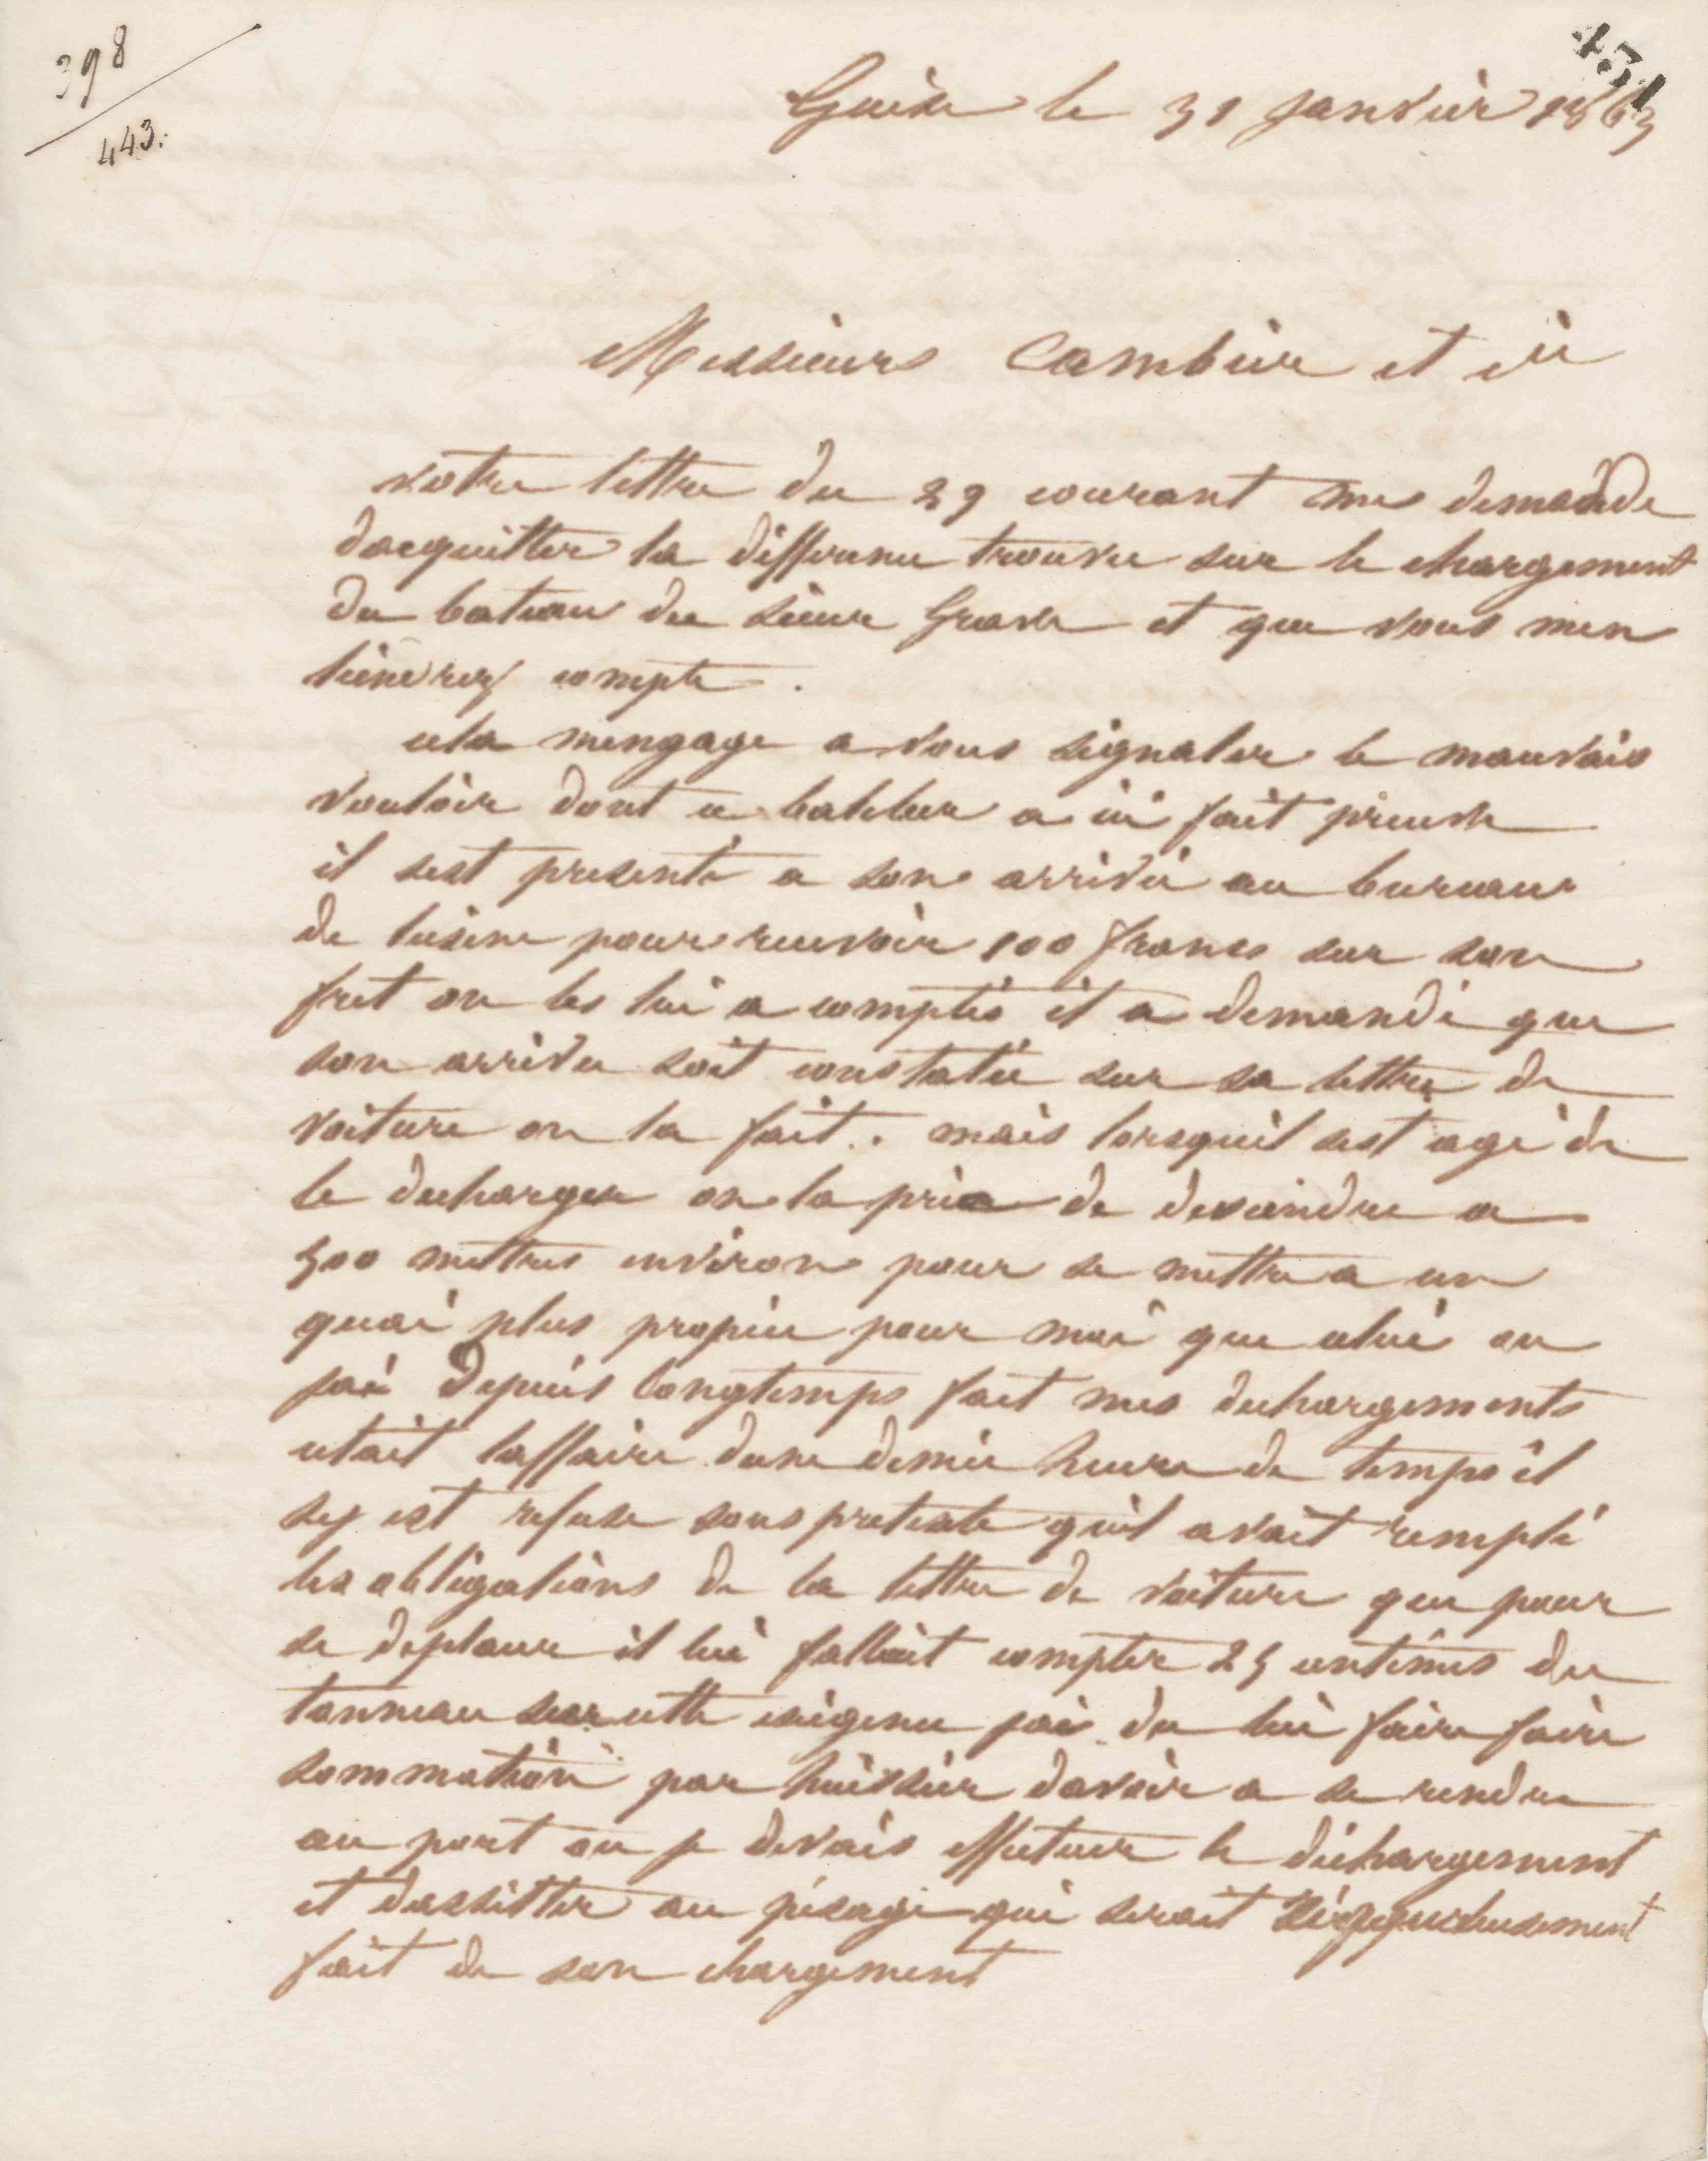 398
443.
431
Guise le 31 janvier 1863
Messieurs Cambier et cie
votre lettre du 29 courant me demande
dacquitter la differance trouvée sur le chargement
du bateau du sieur Grave et que vous men
tiendrez compte.
cela mengage a vous signaler le mauvais
vouloir dont ce batelier a ici fait preuve
il sest presenté a son arrivée au bureau
de lusine pour recevoir 100 francs sur son
fret on les lui a comptés il a demandé que
son arrivée soit constatée sur sa lettre de
voiture on la fait. mais lorsquil sest agi de
le decharger on la prié de descendre a
300 metres environ pour se mettre a un
quai plus propice pour moi que celui ou
jai depuis longtemps fait mes dechargements
cetait laffaire dune demie heure de temps il
sy est refusé sous pretexte quil avait rempli
les obligations de la lettre de voiture que pour
se deplacer il lui fallait compter 25 centimes du
tonneau sur cette exigence jai du lui faire faire
sommation par huissier davoir a se rendre
au port ou je devais effectuer le déchargement
et dassister au pésage qui serait
fait de son chargement